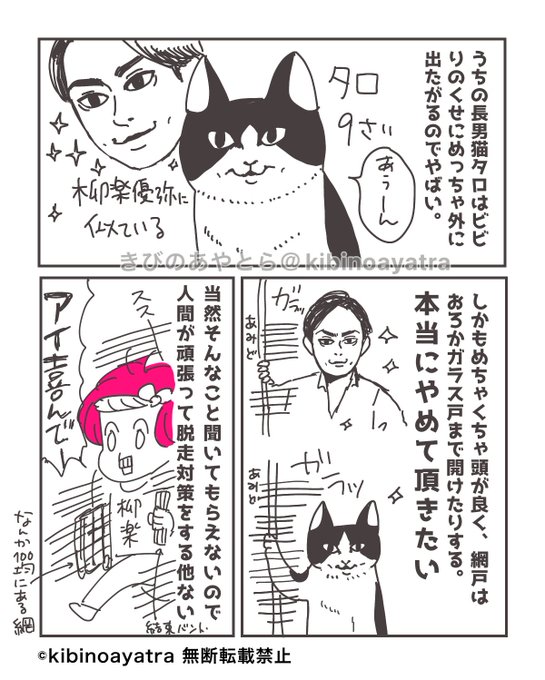 うちの長男猫タロはビビ
りのくせにめっちゃ外に
出たがるのでやばい。
タロ
9さい
あぅーん
柳楽優弥に
似ている
きびのあやとら@kibinoayatra
しかもめちゃくちゃ頭が良く、網戸は
おろかガラス戸まで開けたりする。
本当にやめて頂きたい
ガラッ
あみど
ガラッ
あみど
当然そんなこと聞いてもらえないので
人間が頑張って脱走対策をする他ない
スス…
アイ喜んで
柳楽
結束バンド
なんか100均にある網
©kibinoayatra 無断転載禁止